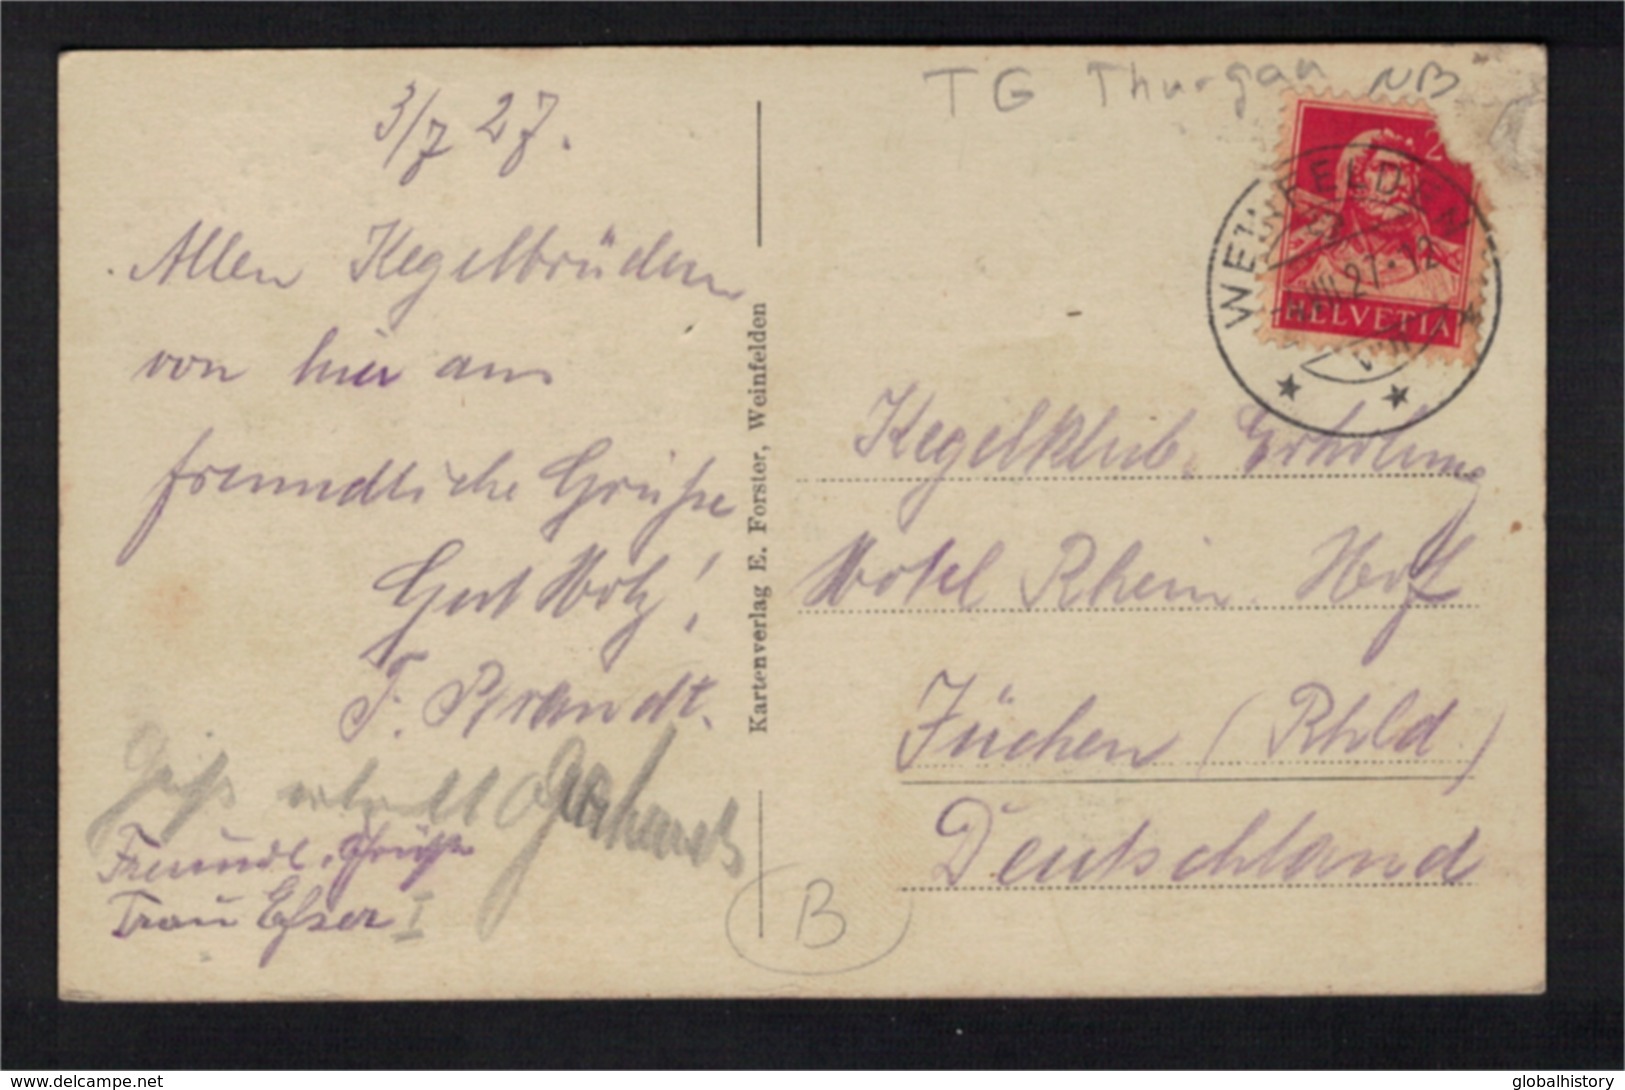 TG Thurgau NB
3/7 27.
Allen Kegelbrüdern
von hier aus
freundliche Grüße
Gut Holz!
F. Brandt.
Freundl. Grüße
Frau Esser I
Kartenverlag E. Forster, Weinfelden
2
HELVETIA
WEINFELDEN
VIII.27.12
Kegelklub Erholung
Hotel Rhein. Hof
Jüchen (Rhld)
Deutschland
B
www.delcampe.net
globalhistory